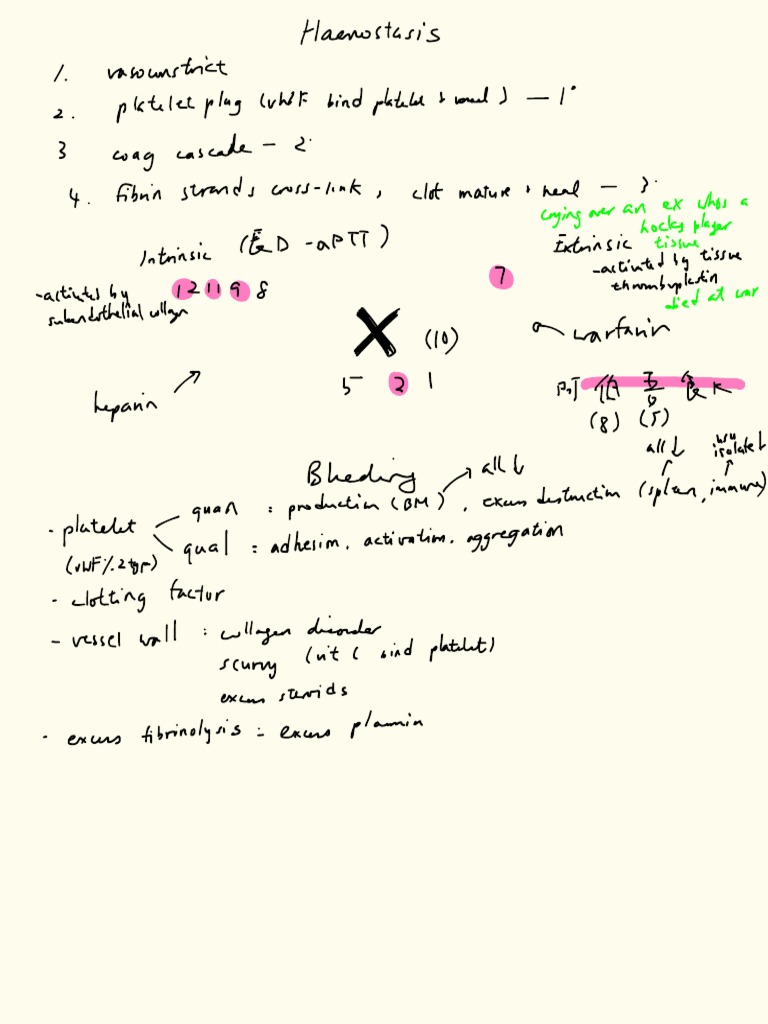 Haemostasis
1. vasoconstrict
2. platelet plug (vWF bind platelet + vessel) — 1°
3 coag cascade — 2°
4. fibrin strands cross-link, clot mature + heal — 3°
crying over an ex who's a
hocks player
tissue
Intrinsic (長D - aPTT)
Extrinsic
- activated by tissue
thromboplastin
died at war
- activated by
subendothelial collagen
12 11 9 8
7
X (10)
warfarin
5 2 1
heparin
(8) (5)
all↓ isolate↓
Bleeding
all↓
- platelet
quan : production (BM), excess destruction (spleen, immune)
qual : adhesion, activation, aggregation
(vWF/.2
- clotting factor
- vessel wall : collagen disorder
scurvy (vit C bind platelet)
excess steroids
- excess fibrinolysis = excess plasmin